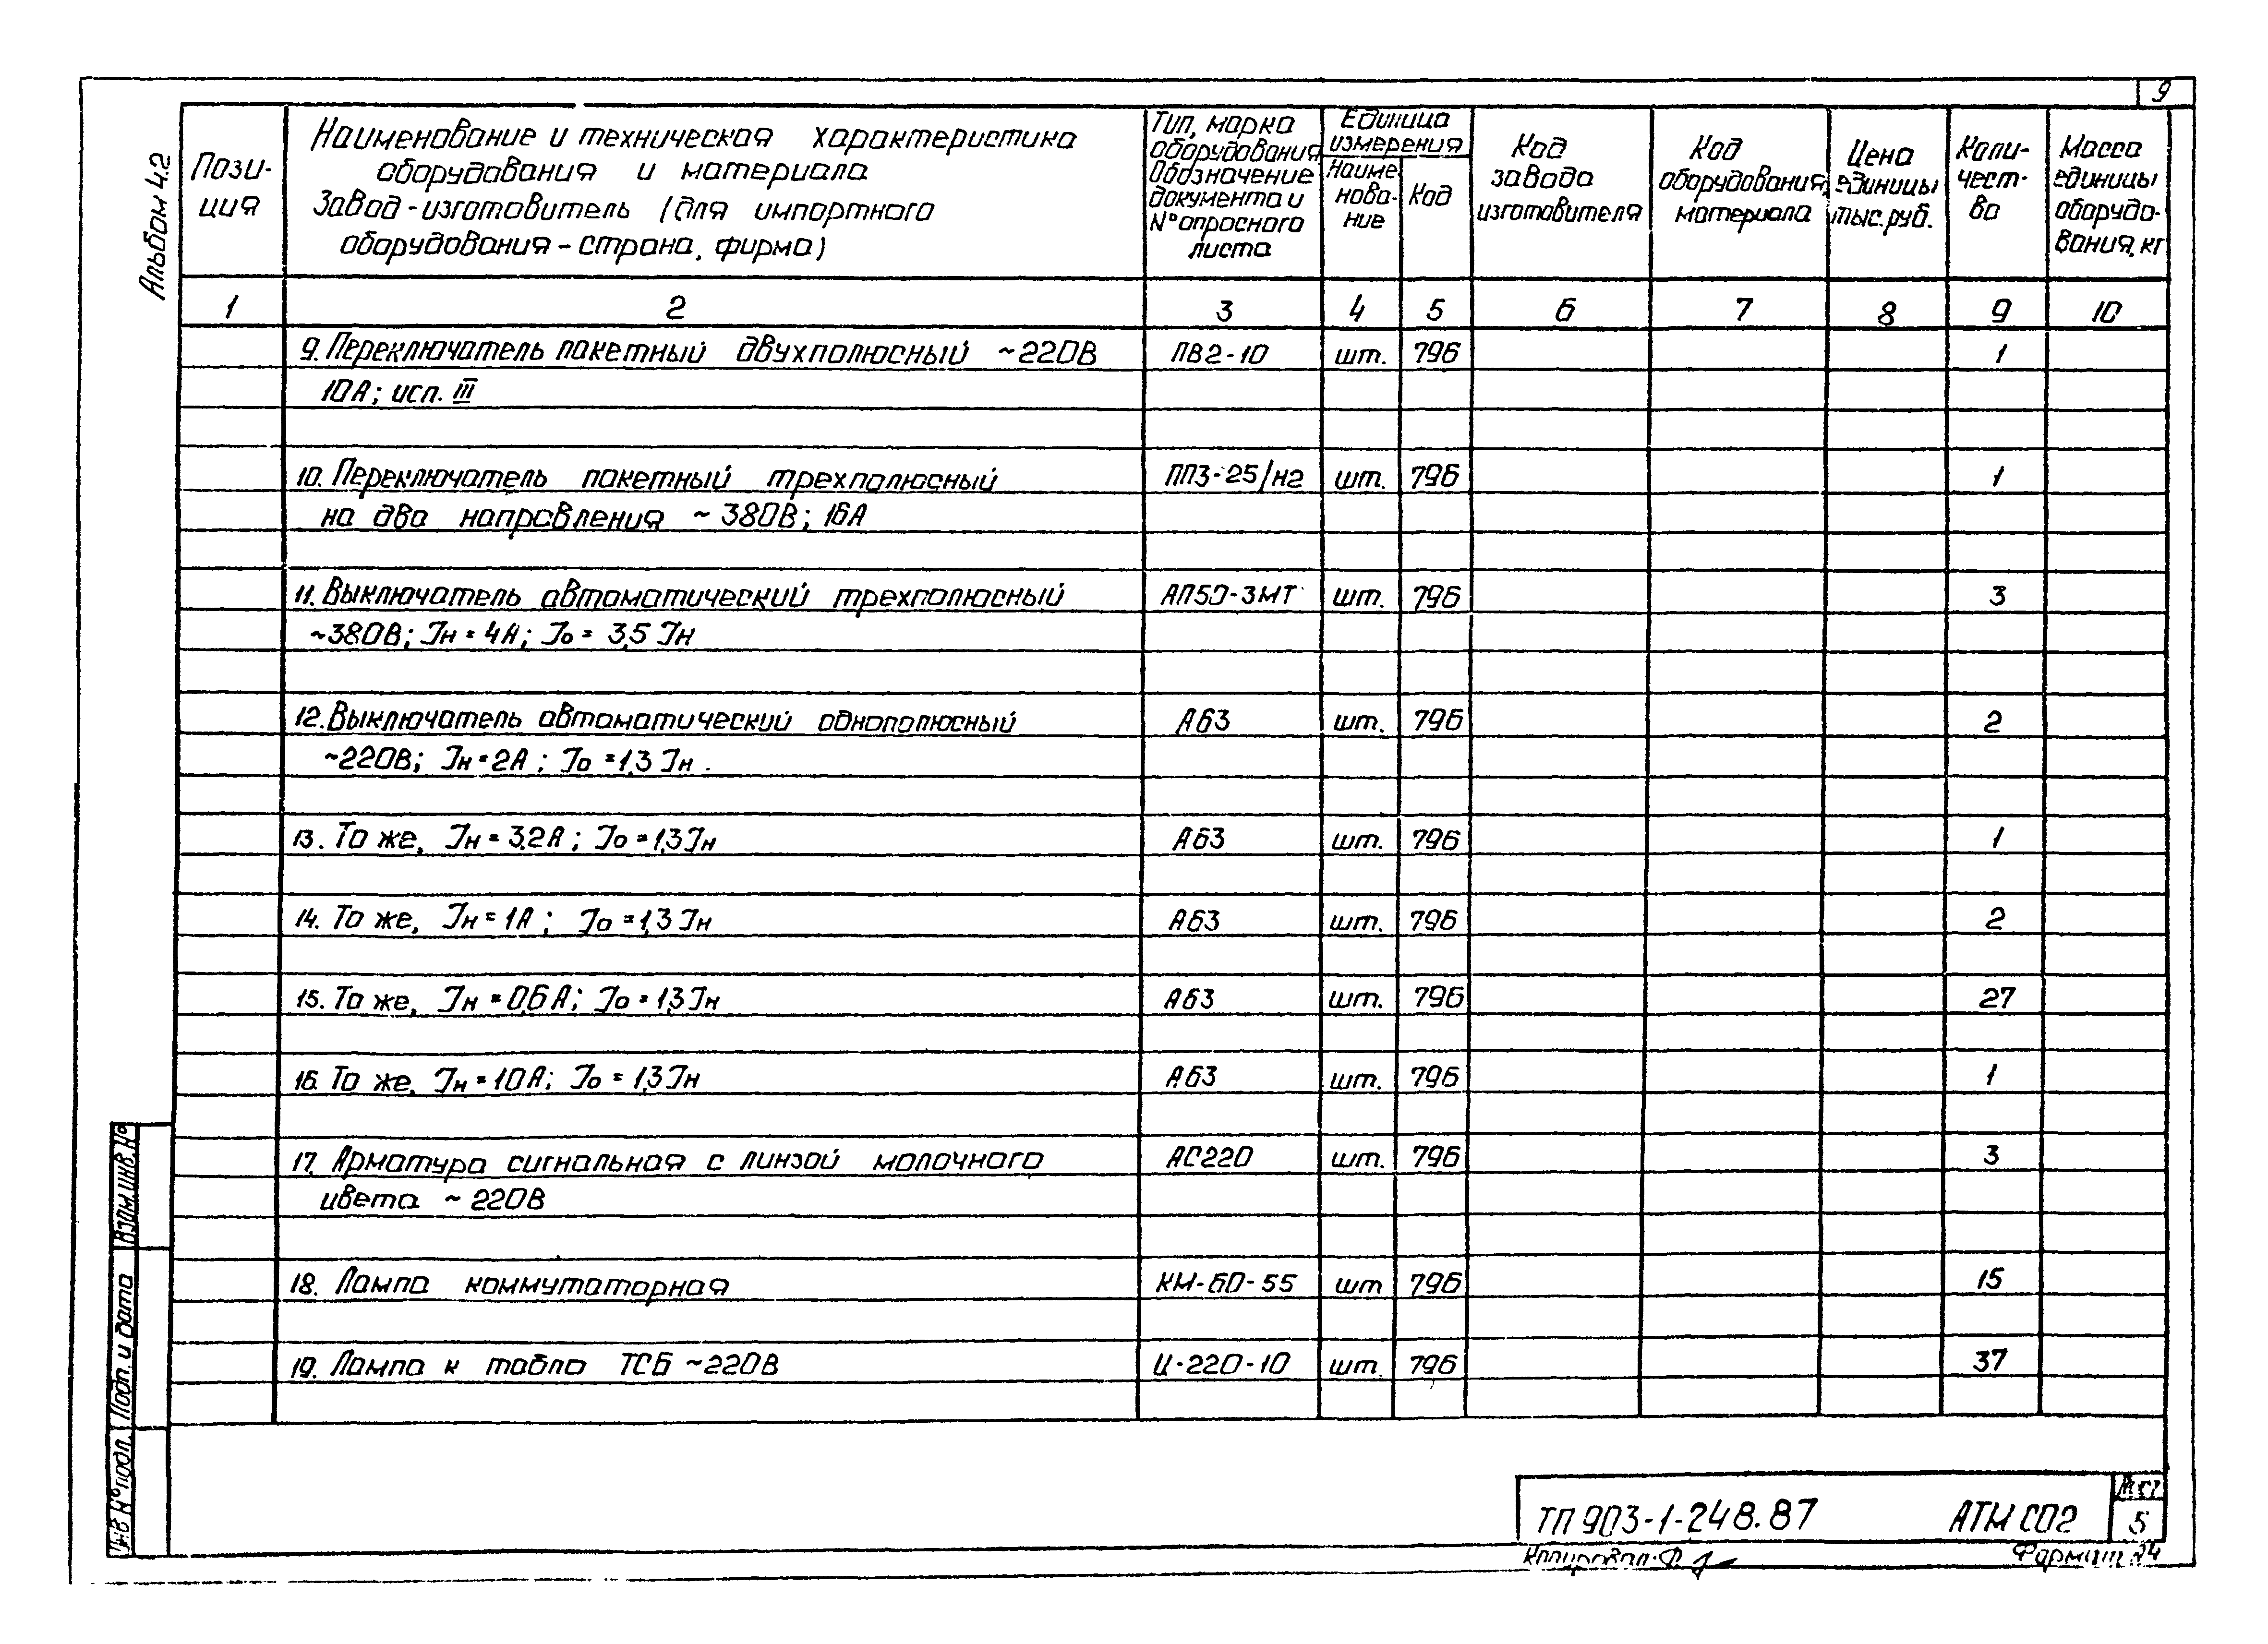 9
Альбом 4.2
Пози-
ция
Наименование и техническая характеристика
оборудования и материала
Завод-изготовитель (для импортного
оборудования - страна, фирма)
Тип, марка
оборудования
Обозначение
документа и
N° опросного
листа
Единица
измерения
Наиме
нова-
ние
Код
Код
завода
изготовителя
Код
оборудования,
материала
Цена
единицы
тыс. руб.
Коли-
чест-
во
Масса
единицы
оборудо-
вания, кг
1 2 3 4 5 6 7 8 9 10
9. Переключатель пакетный двухполюсный ~220В ПВ2-10 шт. 796 1
10А; исп. III
10. Переключатель пакетный трехполюсный ПП3-25/н2 шт. 796 1
на два направления ~ 380В; 16А
11. Выключатель автоматический трехполюсный АП50-3МТ шт. 796 3
~380В; Jн = 4А; Jо = 3,5 Jн
12. Выключатель автоматический однополюсный А63 шт. 796 2
~220В; Jн = 2А; Jо = 1,3 Jн.
13. То же, Jн = 3,2А; Jо = 1,3 Jн А63 шт. 796 1
14. То же, Jн = 1А; Jо = 1,3 Jн А63 шт. 796 2
15. То же, Jн = 0,6А; Jо = 1,3 Jн А63 шт. 796 27
16. То же, Jн = 10А; Jо = 1,3 Jн А63 шт. 796 1
17. Арматура сигнальная с линзой молочного АС220 шт. 796 3
цвета ~ 220В
18. Лампа коммутаторная КМ-60-55 шт 796 15
19. Лампа к табло ТСБ ~220В Ц-220-10 шт. 796 37
Взам. инв. N°
Подп. и дата
Инв N° подл.
ТП 903-1-248.87 АТМ СО2
Лист
5
Копировал:
Формат А4